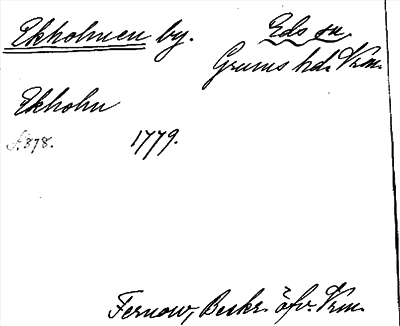 Ekholmen by.
Eds sn.
Grums hd. Vrm.
Ekholm
S. 378.
1779.
Fernow, Beskr. öfv. Vrm.